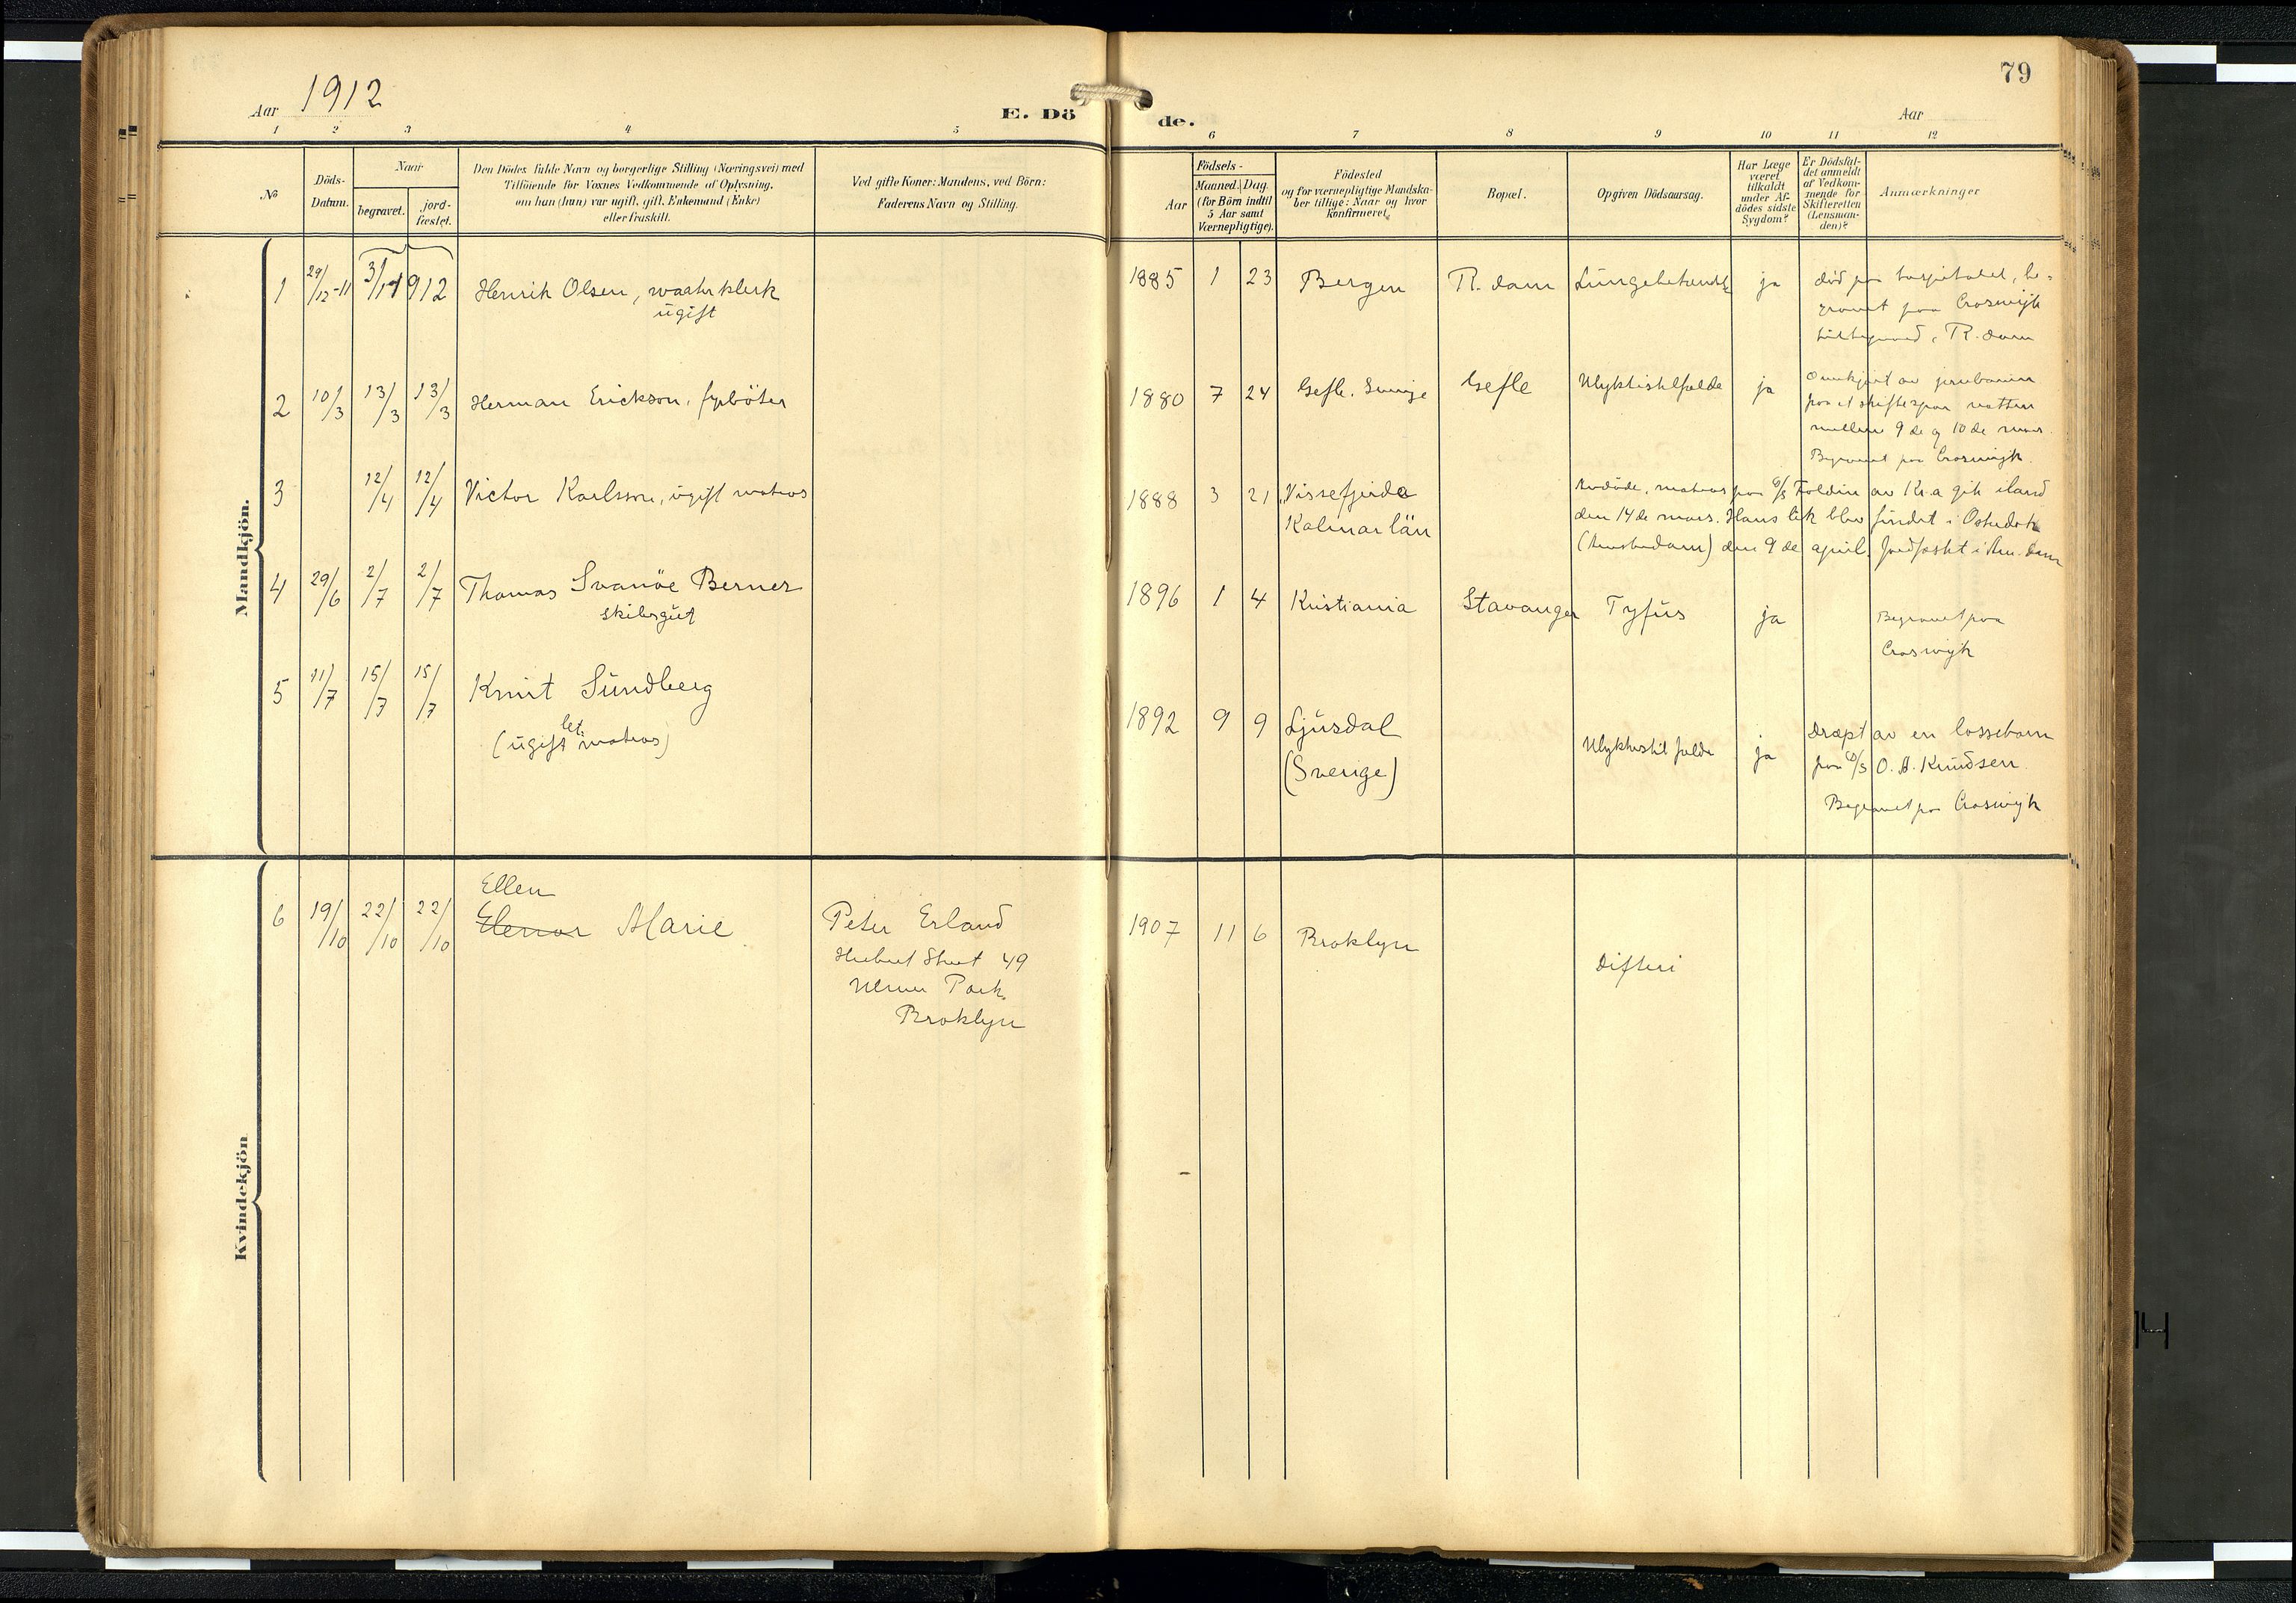 79
Aar 1912
E. Dö
de.
Aar
1 2 3 4 5 6 7 8 9 10 11 12
No
Döds-
Datum.
Naar
begravet.
jord-
fæstet.
Den Dödes fulde Navn og borgerlige Stilling (Næringsvei) med
Tilföiende for Voxnes Vedkommende af Oplysning,
om han (hun) var ugift, gift, Enkemand (Enke)
eller fraskilt.
Ved gifte Koner: Mandens, ved Börn:
Faderens Navn og Stilling.
Födsels-
Aar
Maaned. Dag.
(for Börn indtil
5 Aar samt
Værnepligtige).
Födested
og for værnepligtige Mandska-
ber tillige: Naar og hvor
konfirmeret.
Bopæl.
Opgiven Dödsaarsag.
Har Læge
været
tilkaldt
under Af-
dödes sidste
Sygdom?
Er Dödsfal-
det anmeldt
af Vedkom-
mende for
Skifteretten
(Lensman-
den)?
Anmærkninger
Mandkjön.
1 29/12-11 3/1 1912 Henrik Olsen, waaterklerk
ugift
1885 1 23 Bergen R. dam Lungebetændelse ja död paa hospitalet, be-
gravet paa Croswijk
R. dam
2 10/3 13/3 13/3 Herman Erickson, fyrböter
1880 7 24 Gefle. Sverige Gefle Ulykkestilfælde ja Overkjört av jernbanen
paa et skiftespor natten
mellem 9de og 10de mars.
Begravet paa Croswijk
3 12/4 12/4 Victor Karlsson, ugift matros
1888 3 21 Vissefjerda
Kalmar län
Avdöde, matros paa D/S Foldin av Kr.a gik iland
den 14de mars. Hans lik blev fundet i Osterdok
(Amsterdam) den 9de april. Jordfæstet i Am.dam
4 29/6 2/7 2/7 Thomas Svanöe Berner
skibsgut
1896 1 4 Kristiania Stavanger Tyfus ja Begravet paa
Croswijk
5 11/7 15/7 15/7 Knut Sundberg
(ugift let. matros)
1892 9 9 Ljusdal
(Sverige)
Ulykkestilfælde ja Dræpt av en lossebom
paa D/S O. A. Knudsen.
Begravet paa Croswijk
Kvindekjön
6 19/10 22/10 22/10 Ellen
Elenor Marie
Peter Erland
Hubert Street 49
Ulmer Park
Broklyn
1907 11 6 Broklyn Difteri